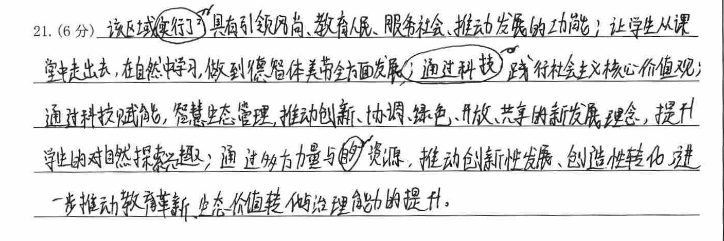 21.(6分) 该区域实行了具有引领风尚、教育人民、服务社会、推动发展的功能；让学生从课
堂中走出去，在自然中学习，做到德智体美劳全方面发展；通过科技践行社会主义核心价值观；
通过科技赋能，智慧生态管理，推动创新、协调、绿色、开放、共享的新发展理念，提升
学生的对自然探索兴趣；通过多方力量与的资源，推动创新性发展、创造性转化，进
一步推动教育革新、生态价值转化的治理能力的提升。